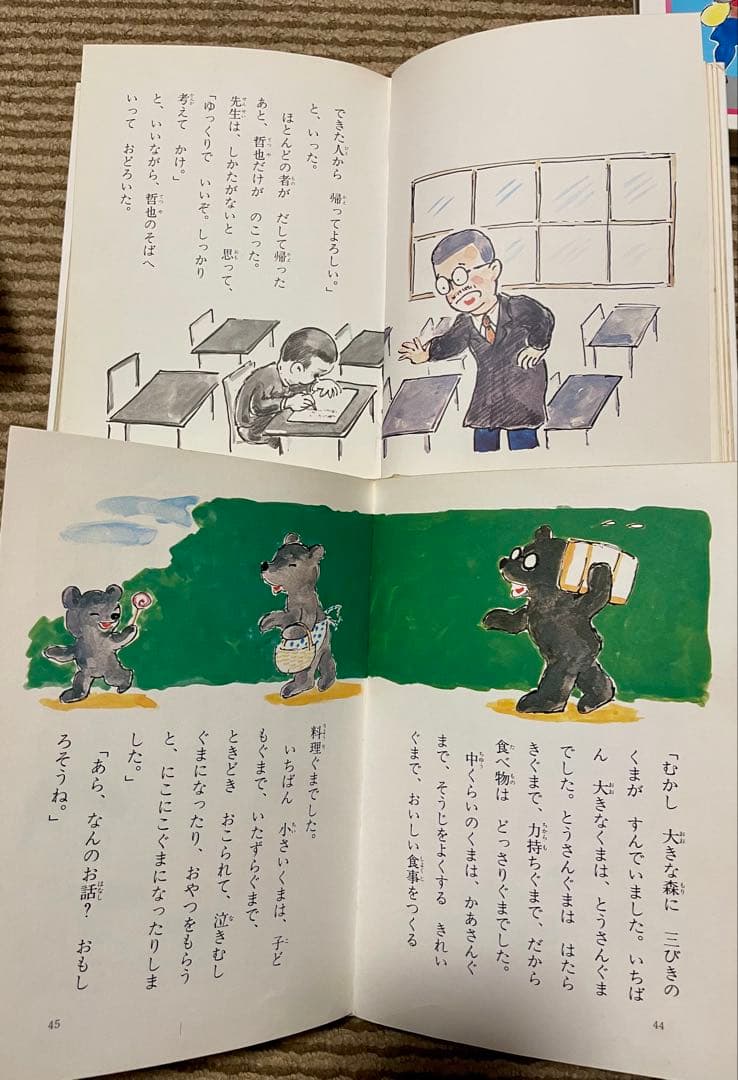 できた人から　帰ってよろしい。」
と、いった。
ほとんどの者が　だして帰った
あと、哲也だけが　のこった。
先生は、しかたがないと　思って、
「ゆっくりで　いいぞ。しっかり
考えて　かけ。」
と、いいながら、哲也のそばへ
いって　おどろいた。
「むかし　大きな森に　三びきの
くまが　すんでいました。いちば
ん　大きなくまは、とうさんぐま
でした。とうさんぐまは　はたら
きぐまで、力持ちぐまで、だから
食べ物は　どっさりぐまでした。
中くらいのくまは、かあさんぐ
まで、そうじをよくする　きれい
ぐまで、おいしい食事をつくる
44
料理ぐまでした。
いちばん　小さいくまは、子ど
もぐまで、いたずらぐまで、
ときどき　おこられて、泣きむし
ぐまになったり、おやつをもらう
と、にこにこぐまになったりしま
した。」
「あら、なんのお話？　おもし
ろそうね。」
45